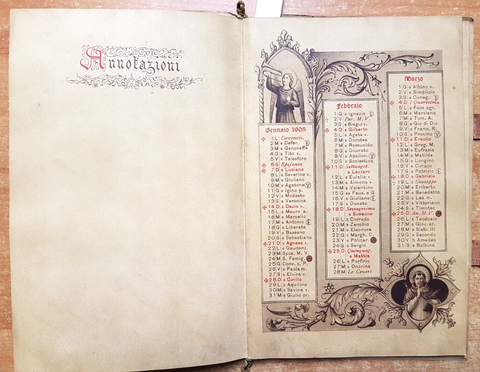 Annotazioni
Gennaio 1906
1 L Circoncis.
2 M s Defen.
3 M s Genoveffa
4 G s Tito v.
5 V s Telesforo
6 S Epifania
7 D s Luciano
8 L s Severino
9 M s Giuliano
10 M s Agatone
11 G s Igino p.
12 V s Modesto
13 S s Veronica
14 D s Dazio v.
15 L s Mauro a.
16 M s Marcello
17 M s Antonio
18 G s Liberata
19 V s Bassano
20 S s Sebastiano
21 D s Agnese v.
22 L s Gaudenz
23 M Spos. M. V.
24 M S. Famig.
25 G Conv. s. P.
26 V s Paola m.
27 S s Elvira v.
28 D s Cirillo
29 L s Aquilino
30 M s Savina v.
31 M s Giulio pr.
Febbraio
1 G s Ignazio
2 V Pur. M. V.
3 S s Biagio v.
4 D s Gilberto
5 L s Agata
6 M s Dorotea
7 M s Romualdo
8 G s Onorato
9 V s Apollon.
10 S s Scolastica
11 D Settuages.
s Lazzaro
12 L s Eulalia v.
13 M s Almino v.
14 M s Valentino
15 G ss Faus. e G
16 V s Giuliana
17 S s Donato
18 D Sessagesima
s Simeone
19 L s Corrado
20 M s Zenobio
21 M s Eleonora
22 G s Margh. C.
23 V s Policar
24 S s Sergio
25 D Quinquag.
s Mattia
26 L s Porfirio
27 M s Onorina
28 M Le Ceneri
Marzo
1 G s Albino v.
2 V s Simplicio
3 S s Cuneg.
4 D I Quaresima
5 L s Foca agr.
6 M s Marciano
7 M s Tom. A.
8 G s Gio di Dio
9 V s Franc. R.
10 S s Provino
11 D s Eraclio
12 L s Greg. M.
13 M s Eufrasia
14 M s Matilde
15 G s Longino
16 V s Ciriaco
17 S s Patrizio
18 D s Gabriele
19 L s Giuseppe
20 M s Eriberto
21 M s Benedetto
22 G s Las m.
23 V s Vittoriano
24 S s Timoteo
25 D An. M. V.
26 L s Teodoro
27 M s Giov. er.
28 M s Sisto III
29 G s Secondo
30 V s Amadeo
31 S s Balbina